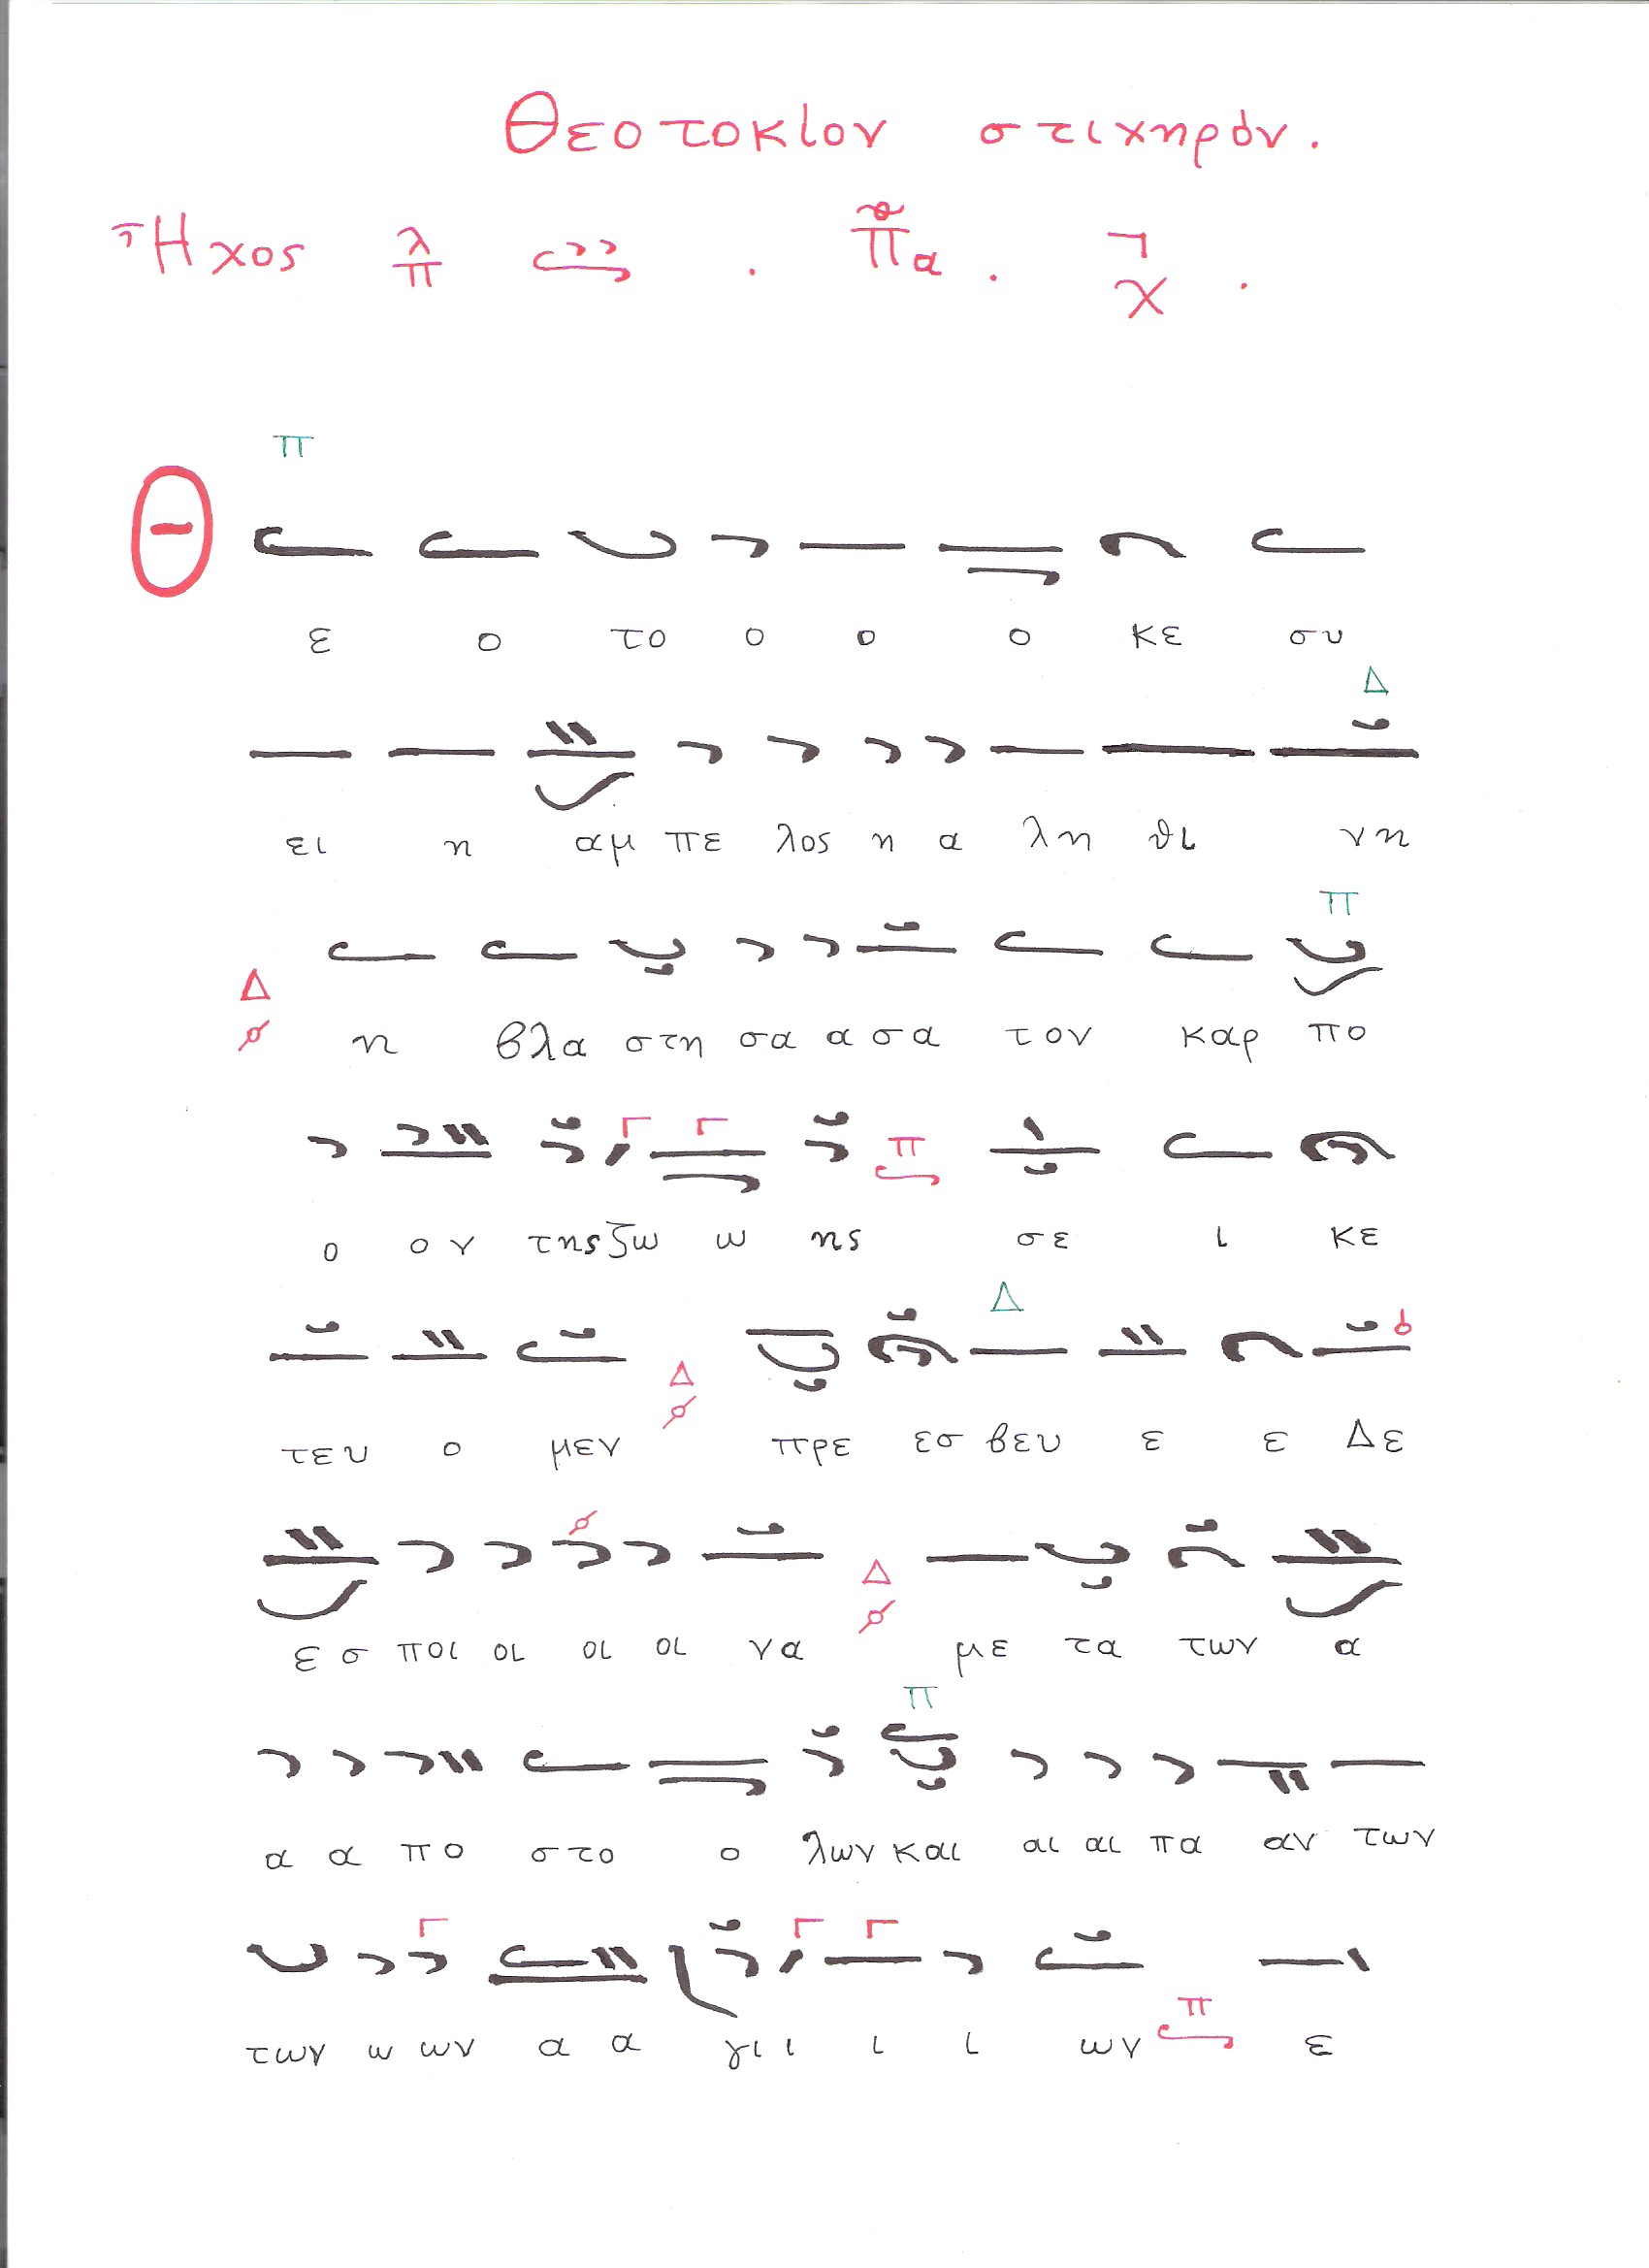 Θεοτοκίον στιχηρόν.
Ἦχος λ π Πα. χ.
Π
Θ
ε ο το ο ο ο κε συ
Δ
ει η αμ πε λος η α λη θι νη
Π
Δ η βλα στη σα α σα τον καρ πο
Γ Γ Π
ο ον της ζω ω ης σε ι κε
Δ
τευ ο μεν Δ πρε εσ βευ ε ε Δε
Δ
ε σ ποι οι οι οι να με τα των α
Π
α α πο στο ο λων και αι αι πα αν των
Γ Γ Γ Π
των ω ων α α γι ι ι ι ων ε